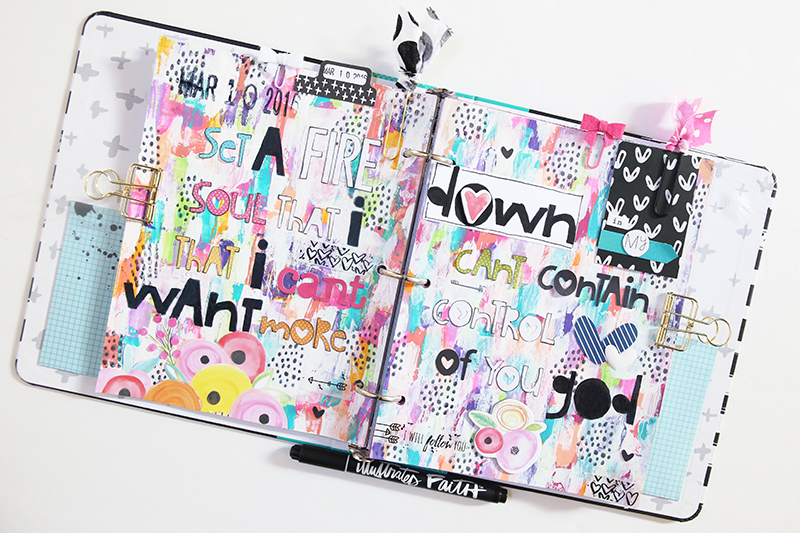 MAR 10 2016
MAR 10 2016
set A FIRE
SOUL THAT i
THAT i cant
WANT more
down
in
MY
CANT CONTAIN
CONTROL
of YOU god
I WILL follow YOU
illustrated FAITH